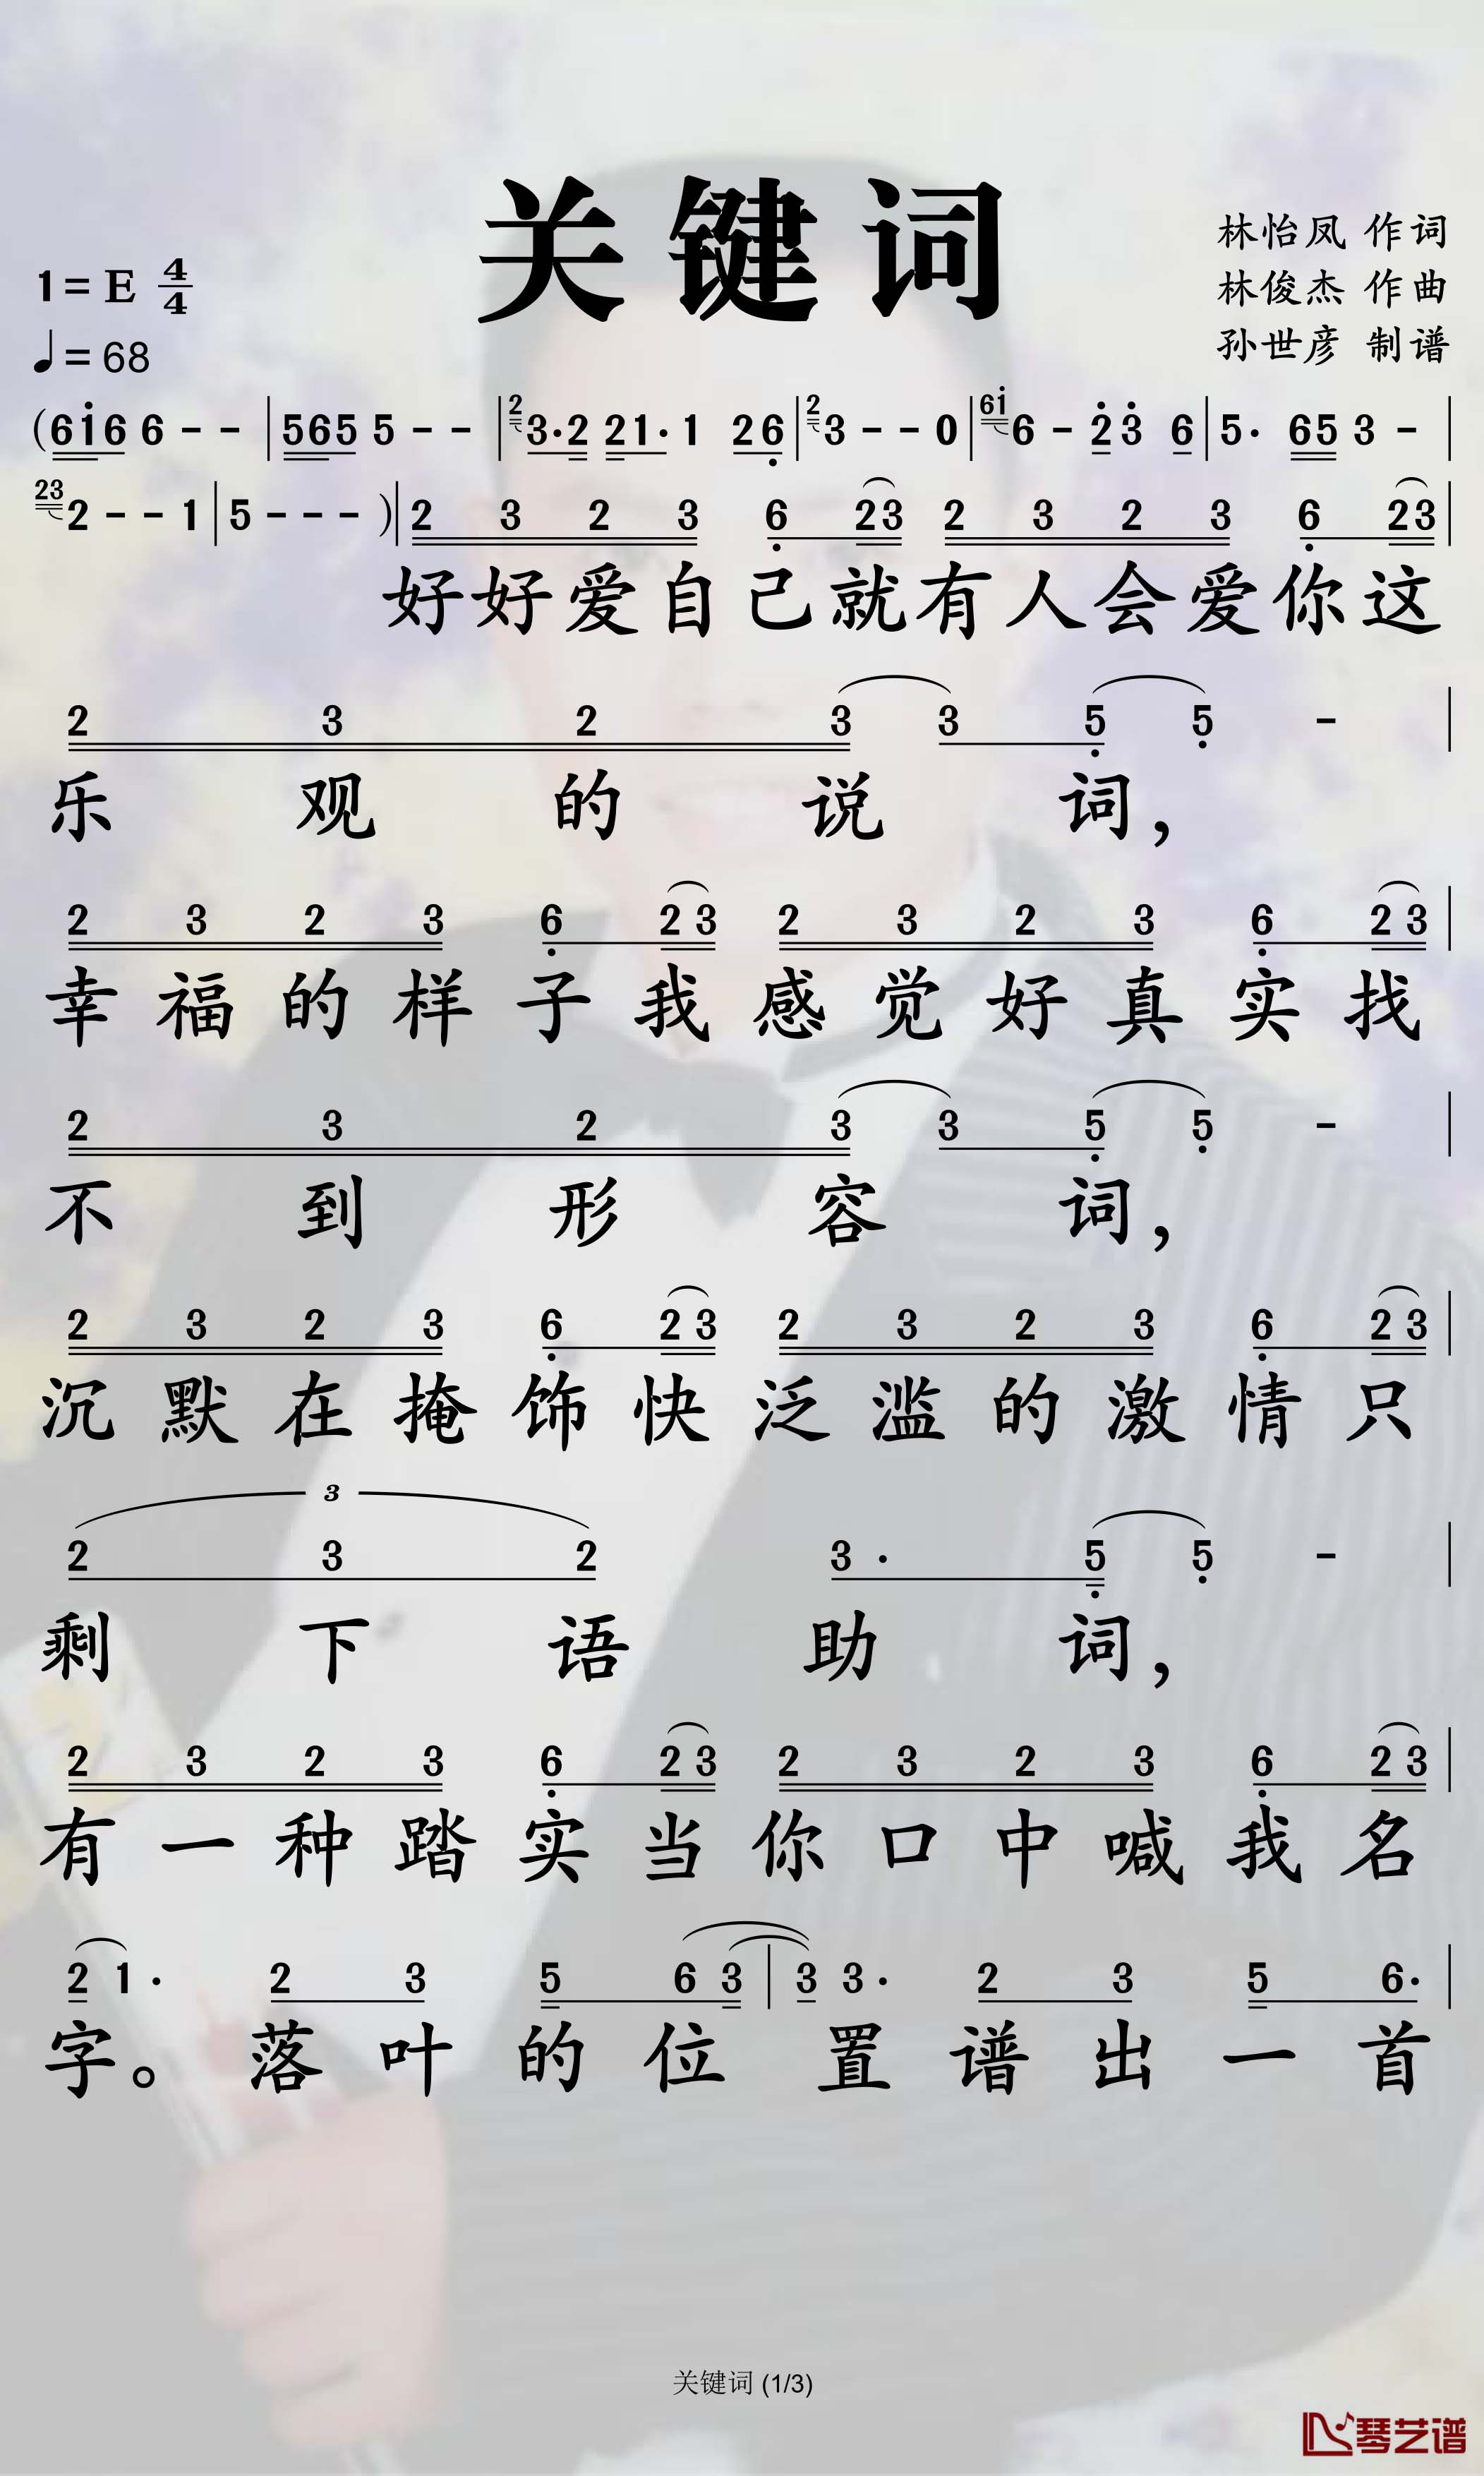 关键词
林怡凤 作词
林俊杰 作曲
孙世彦 制谱
1=E 4/4
♩=68
(6i6 6 - - | 565 5 - - | 2 3·2 21·1 26 | 2 3 - - 0 | 6i 6 - 23 6 | 5· 65 3 - |
23 2 - - 1 | 5 - - - )| 2 3 2 3 6 23 2 3 2 3 6 23 |
好好爱自己就有人会爱你这
2 3 2 3 3 5 5 - |
乐观的说词，
2 3 2 3 6 2 3 2 3 2 3 6 2 3 |
幸福的样子我感觉好真实找
2 3 2 3 3 5 5 - |
不到形容词，
2 3 2 3 6 2 3 2 3 2 3 6 2 3 |
沉默在掩饰快泛滥的激情只
3
2 3 2 3· 5 5 - |
剩下语助词，
2 3 2 3 6 2 3 2 3 2 3 6 2 3 |
有一种踏实当你口中喊我名
2 1· 2 3 5 6 3 | 3 3· 2 3 5 6· |
字。落叶的位置谱出一首
关键词 (1/3)
琴艺谱